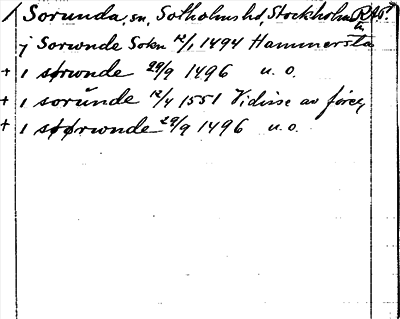 / Sorunda, sn, Sotholms hd, Stockholms län RAp.
j Sorwnde Soken 12/1 1494 Hammersta
+ i sørwnde 29/9 1496 u. o.
+ i sorúnde 12/4 1551 Vidisse av föreg.
+ i søørwnde 29/9 1496 u. o.